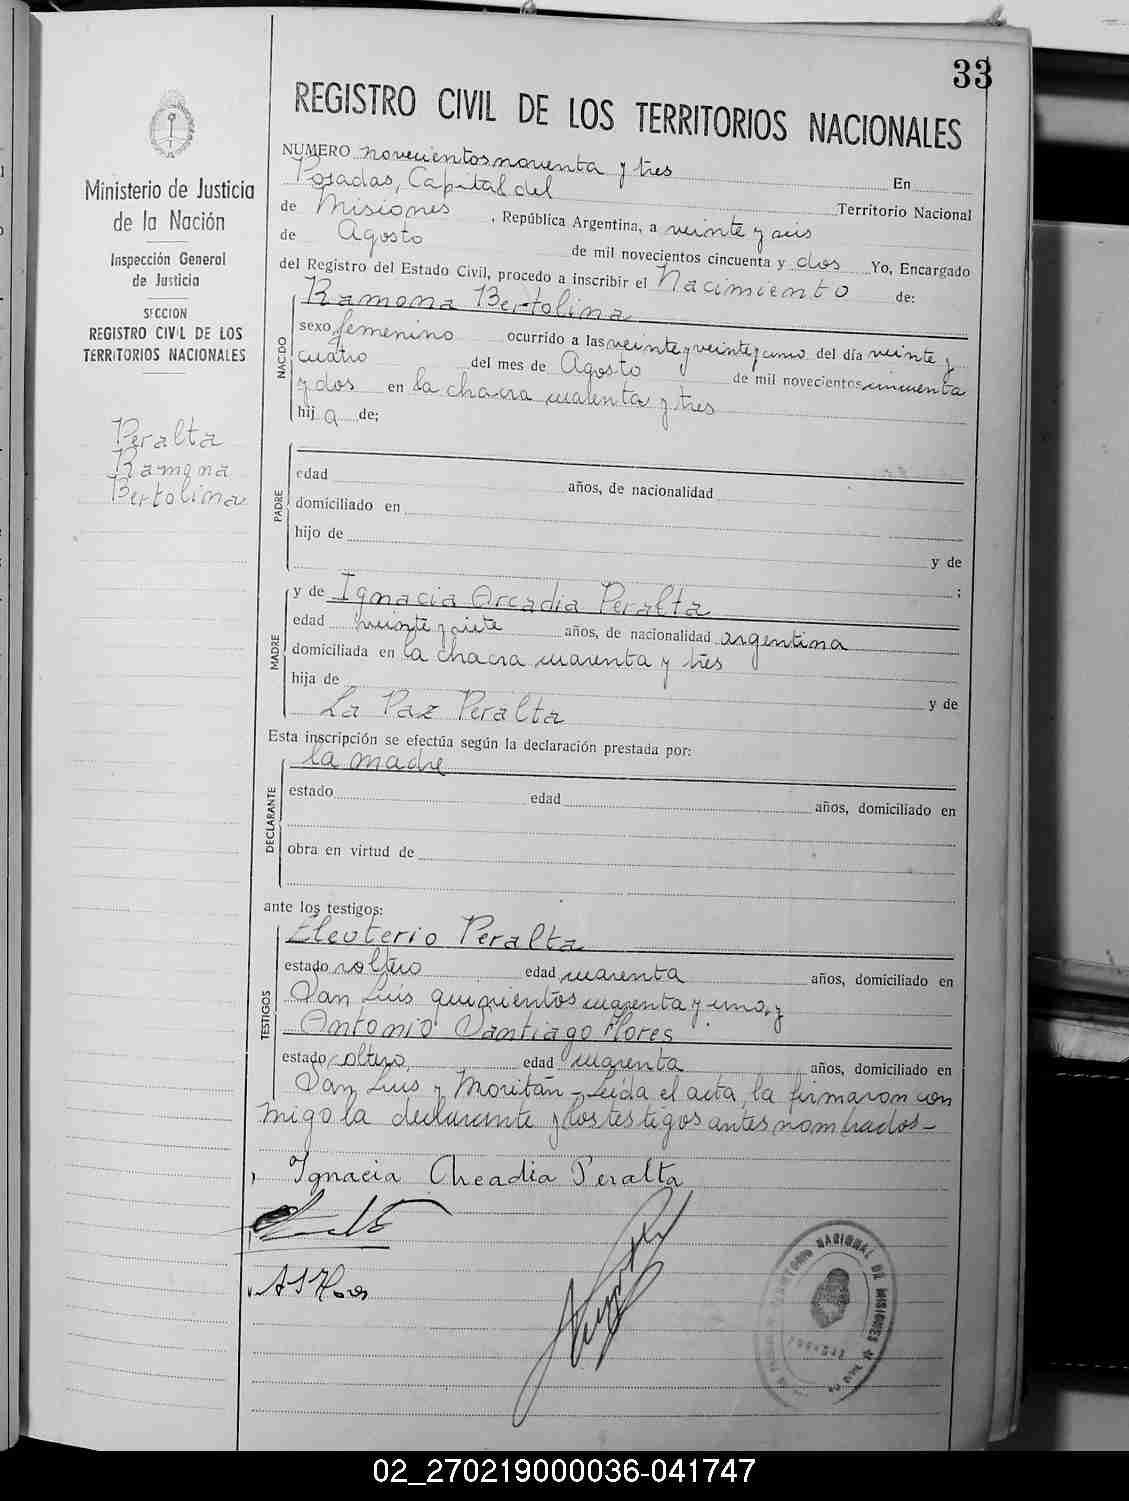 33
REGISTRO CIVIL DE LOS TERRITORIOS NACIONALES
Ministerio de Justicia
de la Nación
Inspección General
de Justicia
SECCION
REGISTRO CIVIL DE LOS
TERRITORIOS NACIONALES
Peralta
Ramona
Bertolina
NUMERO novecientos noventa y tres En
Posadas, Capital del Territorio Nacional
de Misiones, República Argentina, a veinte y seis
de Agosto de mil novecientos cincuenta y dos Yo, Encargado
del Registro del Estado Civil, procedo a inscribir el Nacimiento de:
NACDO
Ramona Bertolina
sexo femenino ocurrido a las veinte y veinte y uno del día veinte y
cuatro del mes de Agosto de mil novecientos cincuenta
y dos en la chacra cuarenta y tres
hij a de;
PADRE
edad años, de nacionalidad
domiciliado en
hijo de
y de
;
MADRE
y de Ignacia Arcadia Peralta
edad veinte y siete años, de nacionalidad argentina
domiciliada en la chacra cuarenta y tres
hija de y de
La Paz Peralta
Esta inscripción se efectúa según la declaración prestada por:
DECLARANTE
la madre
estado edad años, domiciliado en
obra en virtud de
ante los testigos:
TESTIGOS
Eleuterio Peralta
estado soltero edad cuarenta años, domiciliado en
San Luis quinientos cuarenta y uno, y
Antonio Santiago Flores
estado soltero, edad cuarenta años, domiciliado en
San Luis y Moritán - Leída el acta, la firmaron con
migo la declarante y los testigos antes nombrados -
Ignacia Arcadia Peralta
A S Flores
TERRITORIO NACIONAL DE MISIONES
POSADAS
02_270219000036-041747